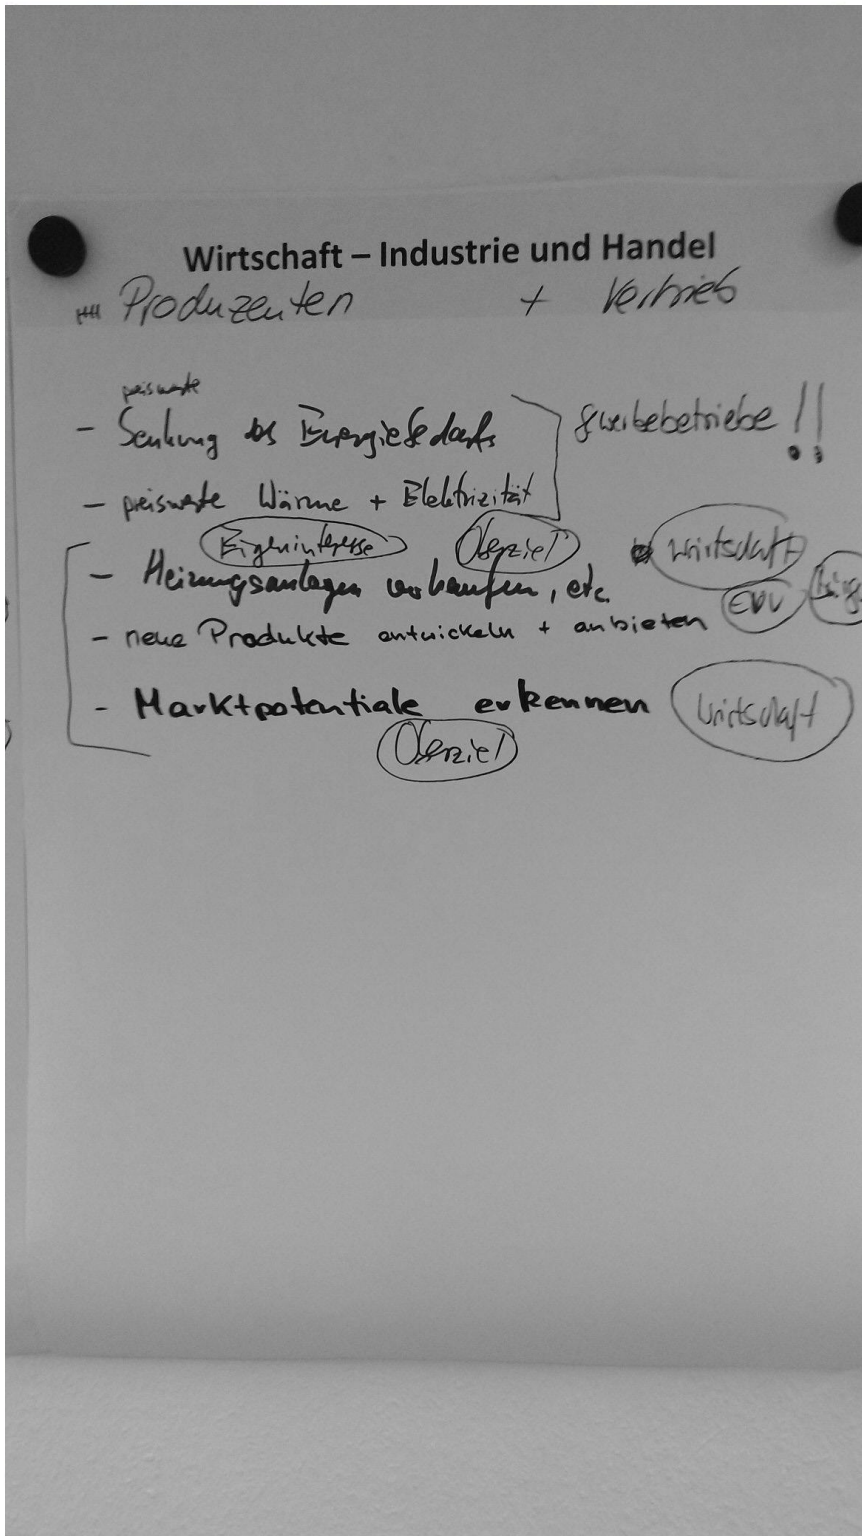 Wirtschaft – Industrie und Handel
Produzenten + Vertrieb
preiswerte
- Senkung des Energiebedarfs
Gewerbebetriebe !!
- preiswerte Wärme + Elektrizität
Eigeninteresse Oberziel Wirtschaft
- Heizungsanlagen verkaufen, etc.
EVU
- neue Produkte entwickeln + anbieten
- Marktpotentiale erkennen Wirtschaft
Oberziel